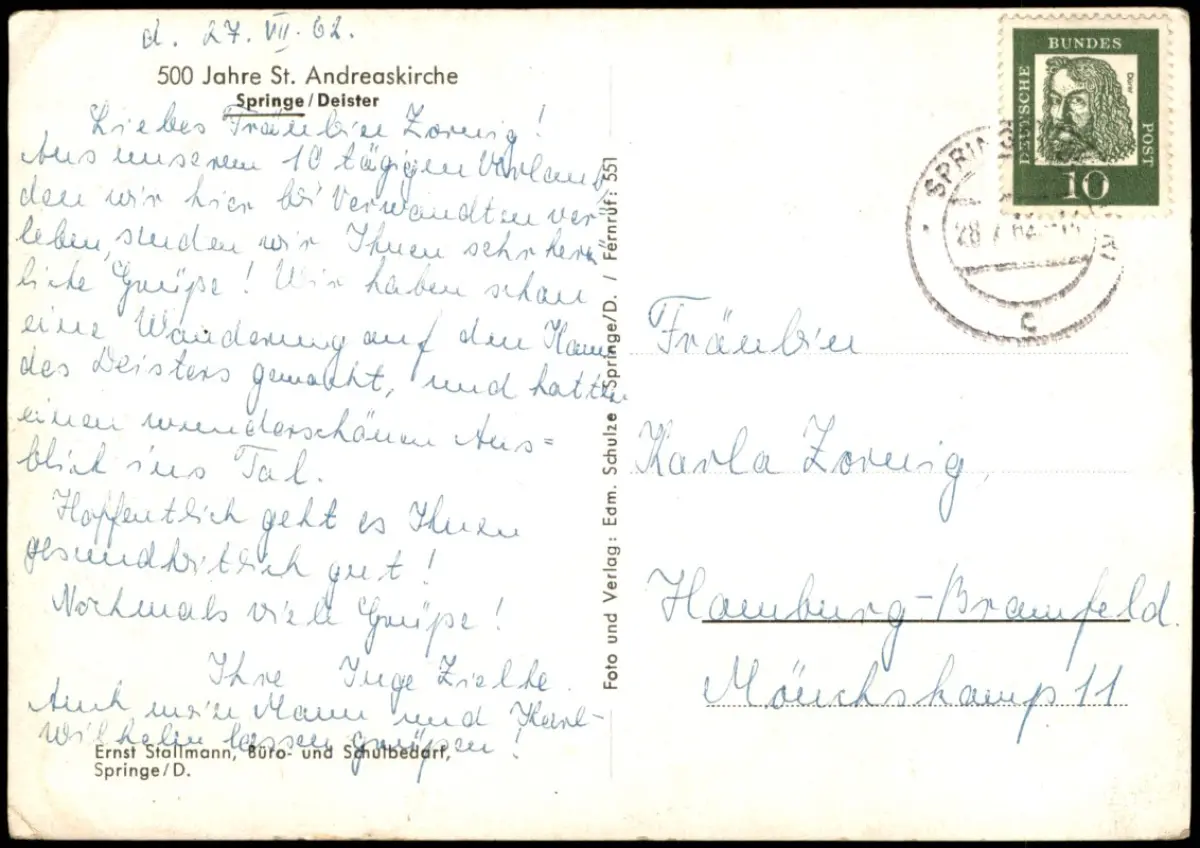 d. 27. VII. 62.
500 Jahre St. Andreaskirche
Springe/Deister
Liebes Fräulein Zornig!
Aus unserem 10 tägigen Urlaub
den wir hier bei Verwandten ver=
leben, senden wir Ihnen sehr herz
liche Grüße! Wir haben schon
eine Wanderung auf den Kamm
des Deisters gemacht, und hatten
einen wunderschönen Aus=
blick ins Tal.
Hoffentlich geht es Ihnen
gesundheitlich gut!
Nochmals viele Grüße!
Ihre Inge Zielke.
Auch mein Mann und Karl-
wilhelm lassen grüßen!
Ernst Stallmann, Büro- und Schulbedarf,
Springe/D.
Foto und Verlag: Edm. Schulze Springe/D. / Fernruf: 551
DEUTSCHE BUNDES POST
Dürer
10
SPRIN
28.7.
c
Fräulein
Karla Zornig,
Hamburg-Bramfeld.
Mönchskamp 11